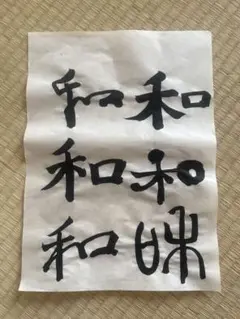 和和
和和
和咊